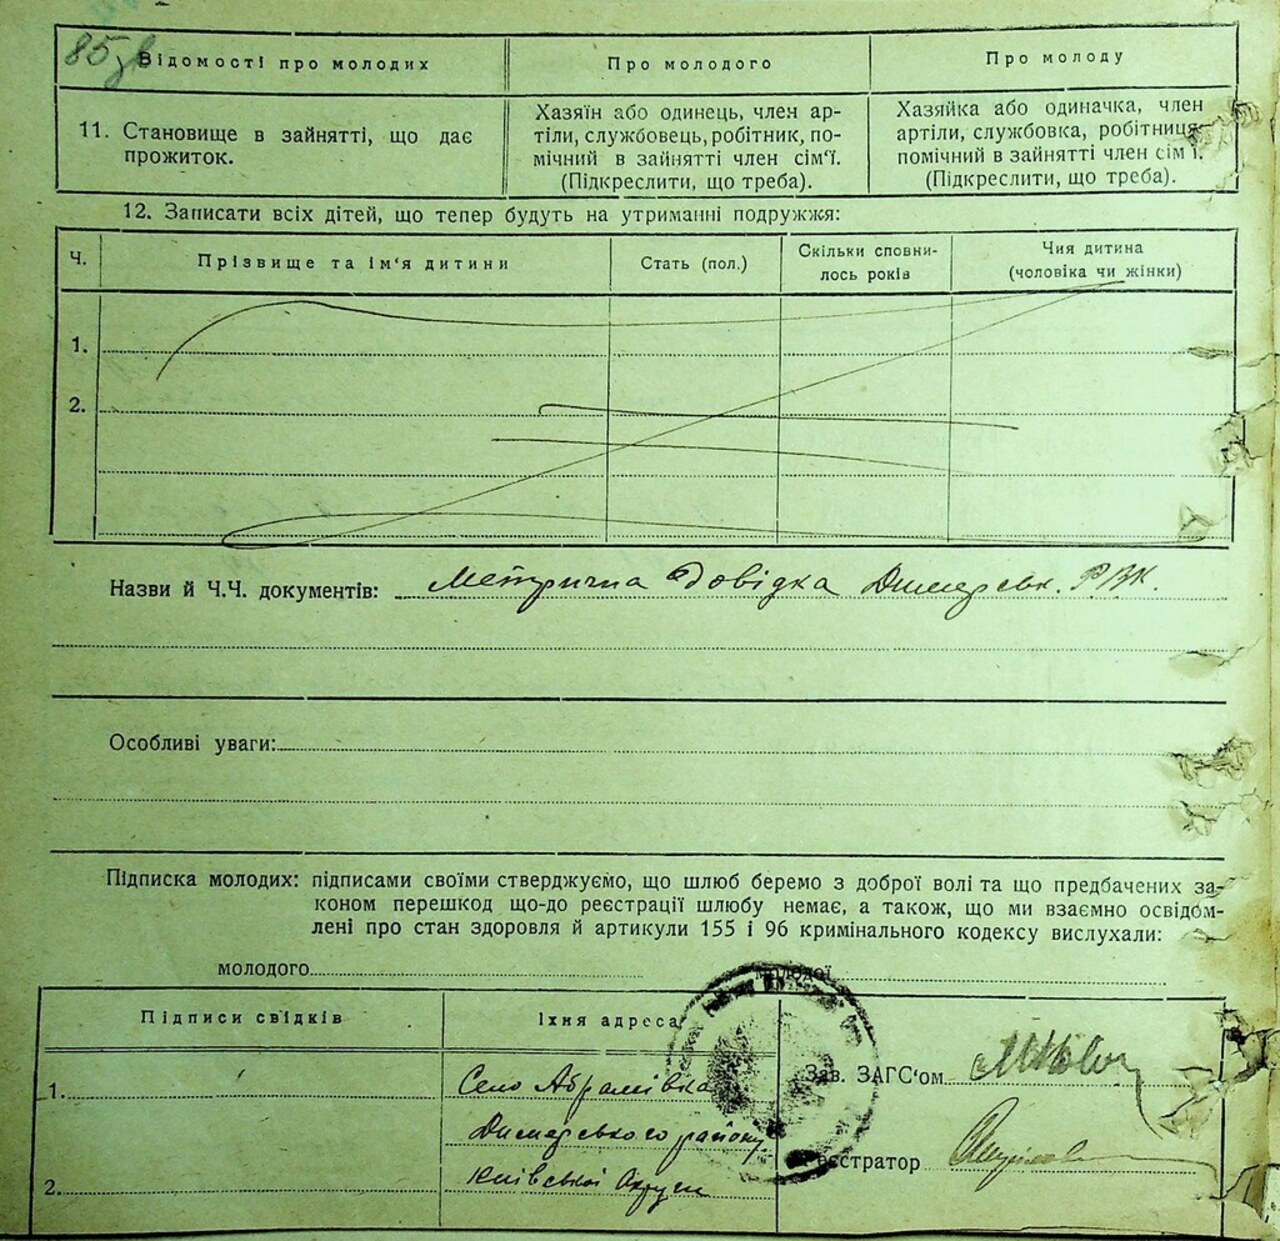 85 зв
Відомості про молодих
Про молодого
Про молоду
11. Становище в зайнятті, що дає
прожиток.
Хазяїн або одинець, член ар-
тіли, службовець, робітник, по-
мічний в зайнятті член сім‘ї.
(Підкреслити, що треба).
Хазяйка або одиначка, член
артіли, службовка, робітниця,
помічний в зайнятті член сім‘ї.
(Підкреслити, що треба).
12. Записати всіх дітей, що тепер будуть на утриманні подружжя:
Ч.
Прізвище та ім‘я дитини
Стать (пол.)
Скільки сповни-
лось років
Чия дитина
(чоловіка чи жінки)
1.
2.
Назви й Ч.Ч. документів: Метрична довідка Димерськ. РВК.
Особливі уваги:
Підписка молодих: підписами своїми стверджуємо, що шлюб беремо з доброї волі та що предбачених за-
коном перешкод що-до реєстрації шлюбу немає, а також, що ми взаємно освідом-
лені про стан здоровля й артикули 155 і 96 кримінального кодексу вислухали:
молодого
молодої
Підписи свідків
Їхня адреса
1.
Село Абрамівка
Димерського району
2.
Київської Округи
Зав. ЗАГС‘ом
Реєстратор